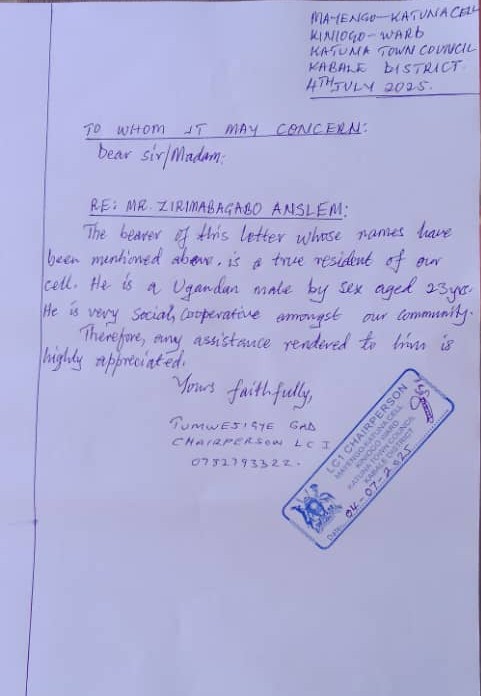 MAYENGO-KATUNA CELL
KINIOGO-WARD
KATUNA TOWN COUNCIL
KABALE DISTRICT.
4TH JULY 2025.
TO WHOM IT MAY CONCERN:
Dear sir/Madam:
RE: MR. ZIRIMABAGABO ANSLEM:
The bearer of this letter whose names have
been mentioned above, is a true resident of our
cell. He is a Ugandan male by sex aged 23yrs.
He is very Social, Cooperative amongst our Community.
Therefore, any assistance rendered to him is
highly appreciated.
Yours faithfully,
TUMWESIGYE GAD
CHAIRPERSON LC I
0782793322.
LC1 CHAIRPERSON
MAYENGO-KATUNA CELL
KINIOGO WARD
KATUNA TOWN COUNCIL
KABALE DISTRICT
Date: 04-07-2025